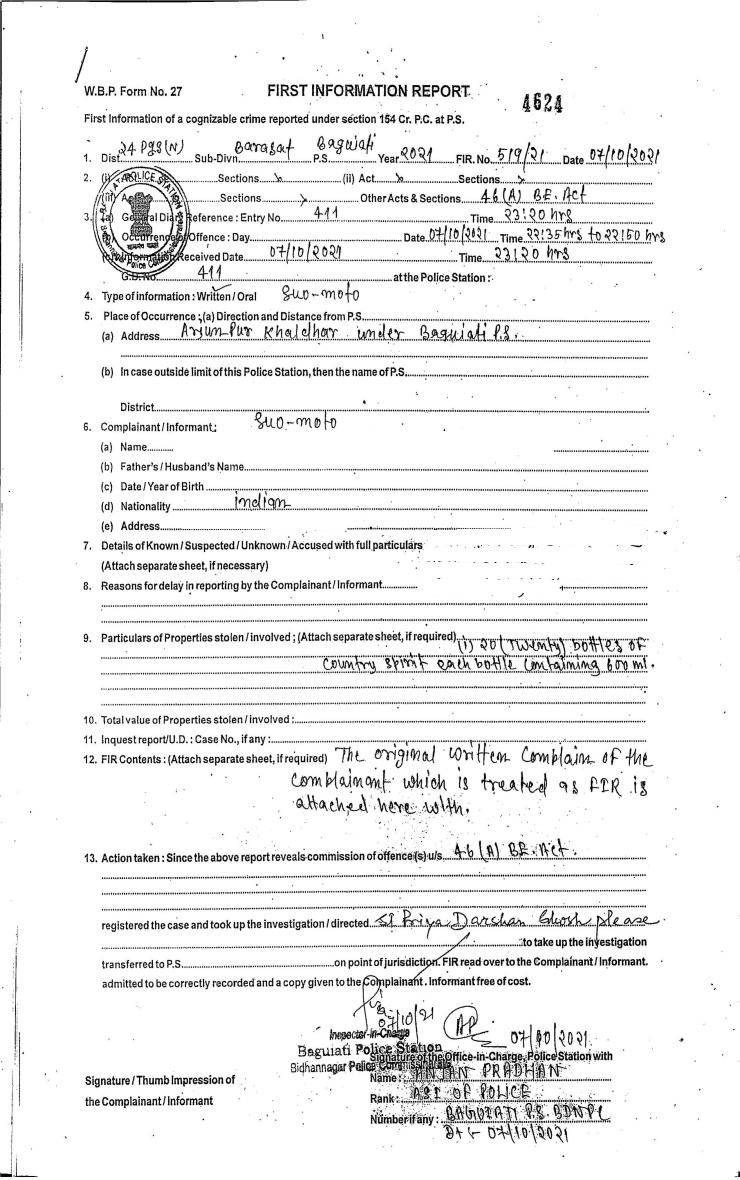 W.B.P. Form No. 27 FIRST INFORMATION REPORT 4624
First Information of a cognizable crime reported under section 154 Cr. P.C. at P.S.
1. Dist. 24 PGS(N) Sub-Divn. Barasat P.S. Baguiati Year 2021 FIR. No. 519/21 Date 07/10/2021
2. (i) Sections (ii) Act Sections
(iii) Sections Other Acts & Sections 46(A) BE. Act
3. (a) General Diary Reference : Entry No. 411 Time 23:20 hrs
Occurrence of Offence : Day Date 07/10/2021 Time 22:35 hrs to 22:50 hrs
Information Received Date 07/10/2021 Time 23:20 hrs
G.D. No. 411 at the Police Station :
4. Type of information : Written / Oral Suo-moto
5. Place of Occurrence ; (a) Direction and Distance from P.S.
(a) Address Arjunpur Khaldhar under Baguiati P.S.
(b) In case outside limit of this Police Station, then the name of P.S.
District
6. Complainant / Informant : Suo-moto
(a) Name
(b) Father's / Husband's Name
(c) Date / Year of Birth
(d) Nationality indian
(e) Address
7. Details of Known / Suspected / Unknown / Accused with full particulars
(Attach separate sheet, if necessary)
8. Reasons for delay in reporting by the Complainant / Informant
9. Particulars of Properties stolen / involved ; (Attach separate sheet, if required) (i) 20 (Twenty) bottles of
Country spirit each bottle containing 600 ml.
10. Total value of Properties stolen / involved :
11. Inquest report / U.D. : Case No., if any :
12. FIR Contents : (Attach separate sheet, if required) The original written Complain of the
Complainant which is treated as FIR is
attached here with.
13. Action taken : Since the above report reveals commission of offence(s) u/s 46 (A) BE. Act.
registered the case and took up the investigation / directed SI Priya Darshan Ghosh please
to take up the investigation
transferred to P.S. on point of jurisdiction. FIR read over to the Complainant / Informant.
admitted to be correctly recorded and a copy given to the Complainant. Informant free of cost.
07/10/21
07/10/2021
Inspector-in-Charge
Baguiati Police Station
Signature of the Office-in-Charge, Police Station with
Bidhannagar Police Commissionerate
Name : PRADHAN
Signature / Thumb Impression of
Rank : ASI OF POLICE
the Complainant / Informant
Number if any : BAGUIATI P.S. BDNPC
Dt - 07/10/2021